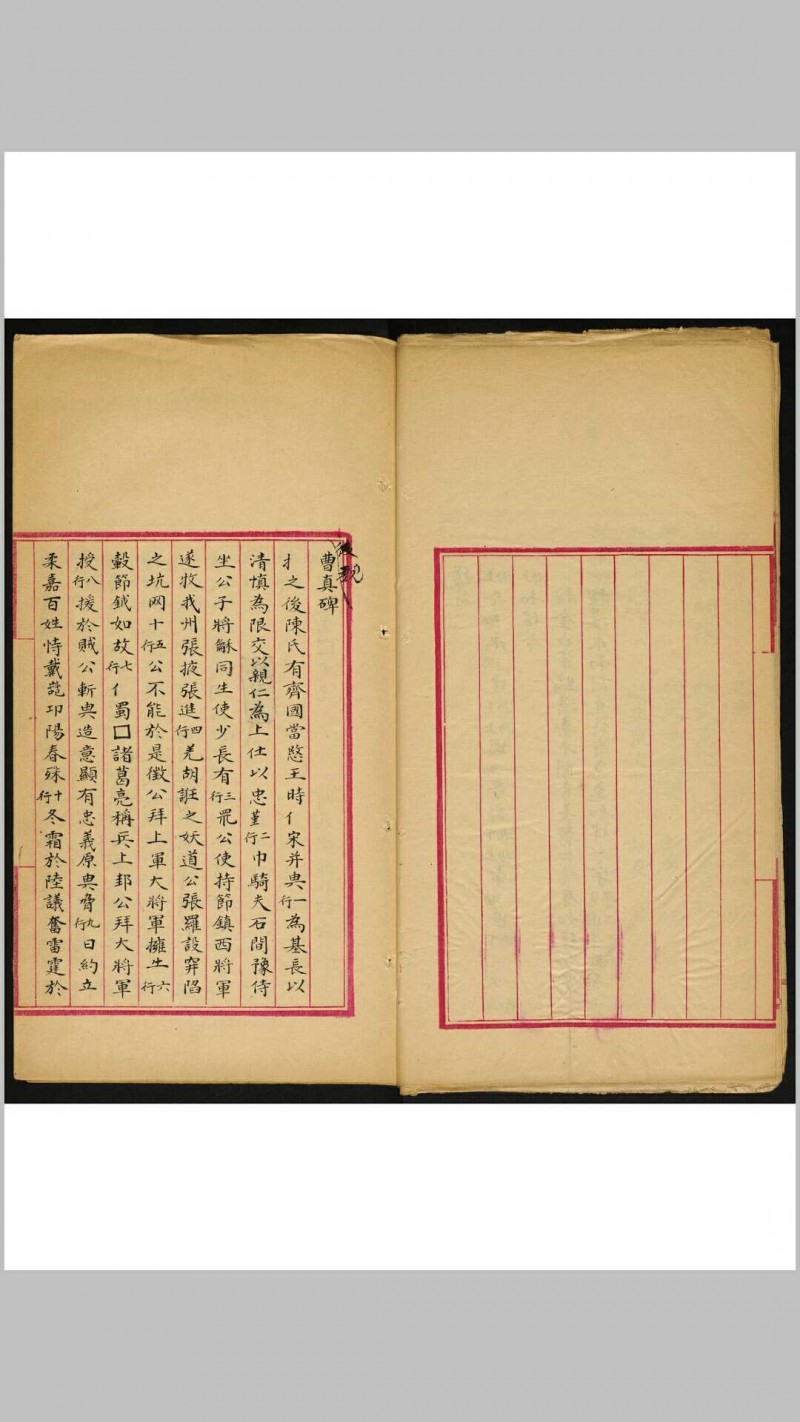 後魏
曹真碑
扌之後陳氏有齊國當愍王時亻宋并典一行為基長以
清慎為限交以親仁為上仕以忠堇二行巾騎夫石間豫侍
坐公子將龢同生使少長有三行眾公使持節鎮西將軍
遂牧我州張掖張進四行羌胡誑之妖道公張羅設穽陷
之坑网十五行公不能於是徵公拜上軍大將軍擁𠂒六行
轂節鉞如故七行亻蜀□諸葛亮稱兵上邽公拜大將軍
授八行援於賊公斬典造意顯有忠義原典脅九行日約立
柔嘉百姓恃戴𦱤卭陽春殊十行冬霜於陸議奮雷霆於